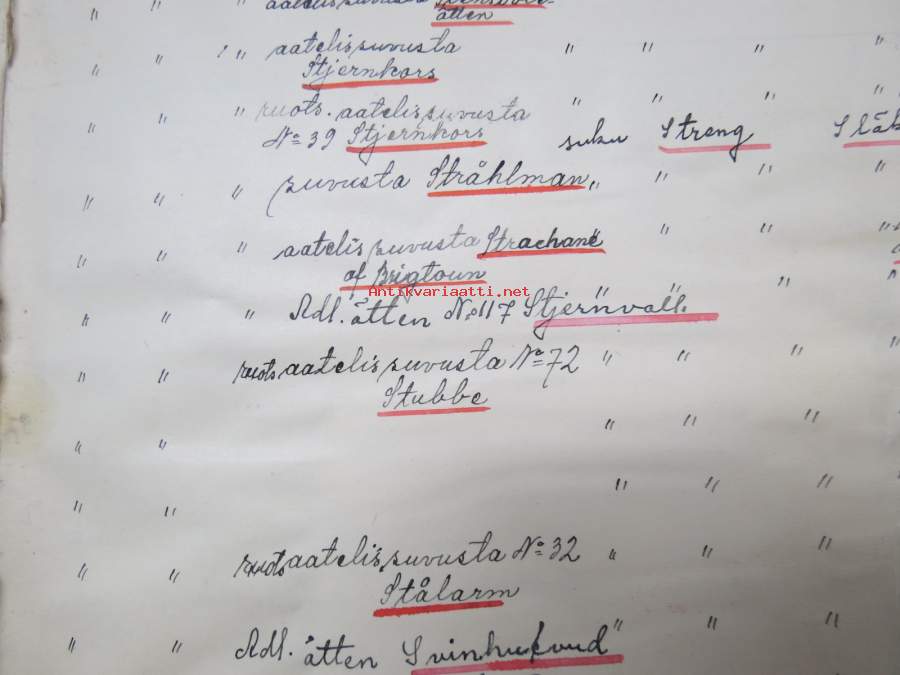 aatelissuvusta
ätten
" " " aatelissuvusta " " " "
Stjernkors
" " " ruots. aatelissuvusta " " " "
No 39 Stjernkors suku Streng Släk
" " " suvusta Stråhlman " " " "
" " " aatelissuvusta Strachane " " "
of Brigtoun "
Antikvariaatti.net
" " " Adl. ätten No 117 Stjernvall " " "
" " ruots aatelissuvusta No 72 " " " "
Stubbe
" " " " "
" " " " "
" " ruots aatelissuvusta No 32 " " "
Stålarm
" " Adl. ätten Svinhufvud " " "